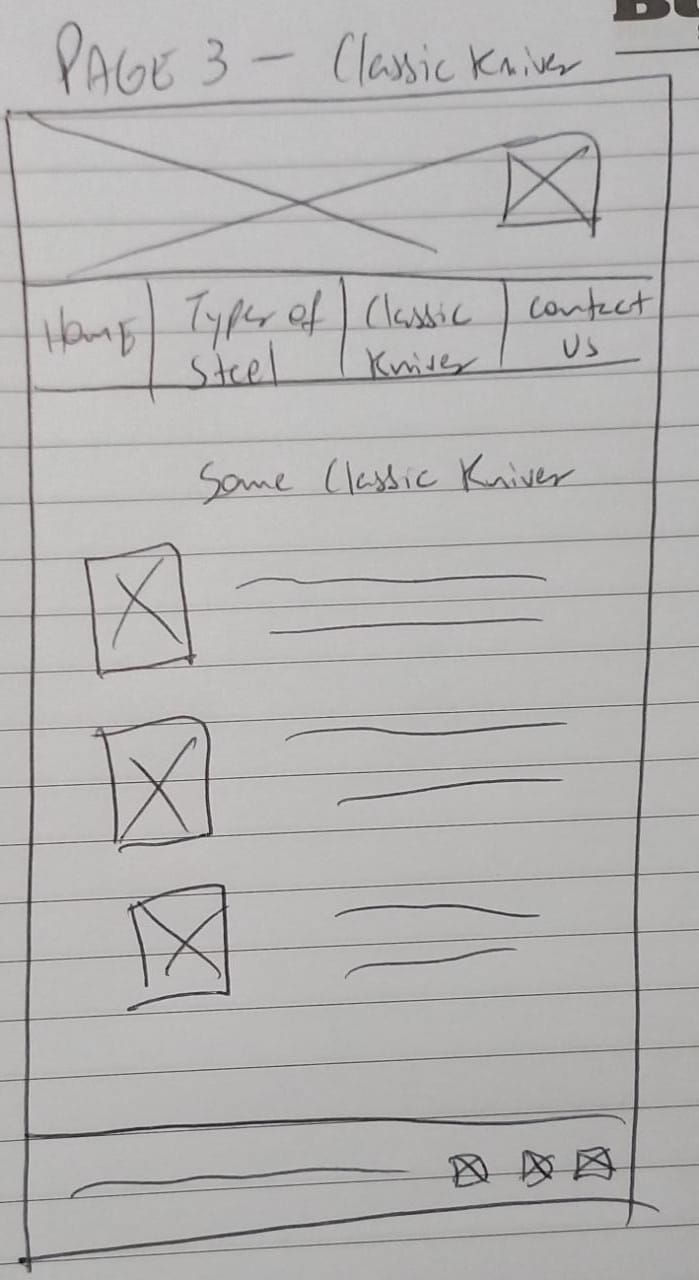 PAGE 3 - Classic Knives
Home
Types of
Steel
Classic
Knives
Contact
Us
Some Classic Knives